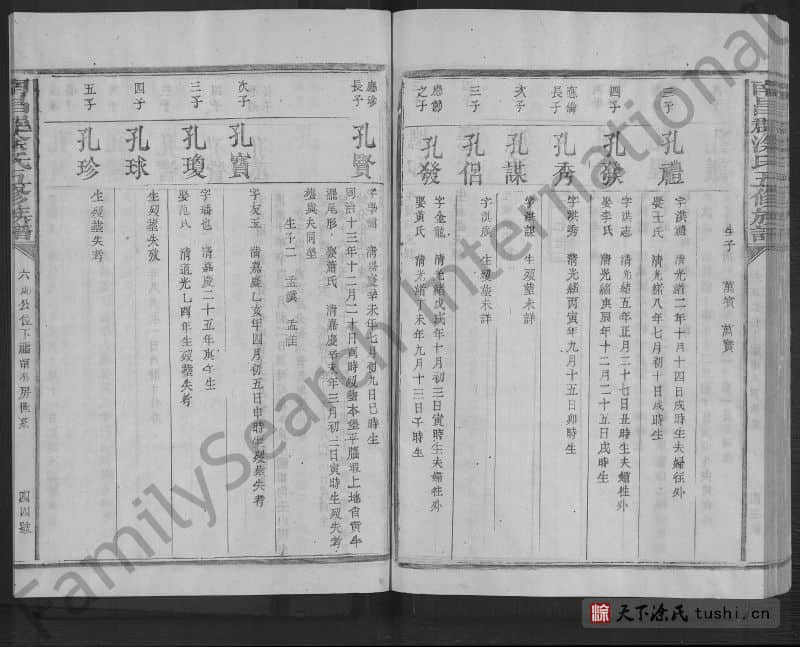 生子 萬賓 萬寶
三子
孔禮
字洪禮 清光緒二年十月十四日戌時生夫婦往外
娶王氏 清光緒八年七月初十日戌時生
四子
字洪志 清光緒五年正月二十七日丑時生夫婦往外
娶李氏 清光緒庚辰年十二月二十五日戌時生
應論長子
孔秀
字洪秀 清光緒丙寅年九月十五日卯時生
次子
孔謀
字洪謀 生歿墓未詳
三子
孔侶
字洪成 生歿墓未詳
應節之子
孔發
字金龍 清光緒戊戌年十月初三日寅時生夫婦往外
娶黃氏 清光緒丁未年九月十三日子時生
應珍長子
孔賢
清嘉慶辛未年七月初九日巳時生
同治十三年十二月二十日酉時歿
娶蕭氏 清嘉慶辛未年三月初二日寅時生歿失考
墓與夫同塋
生子二
次子
孔寶
清嘉慶乙亥年四月初五日申時生歿墓失考
三子
孔瓊
清嘉慶二十五年庚午生
娶范氏 清道光乙酉年生歿墓失考
四子
孔球
生歿墓失攷
五子
孔珍
生歿墓失考
四四號
FamilySearch International
涂 天下涂氏 tushi.cn